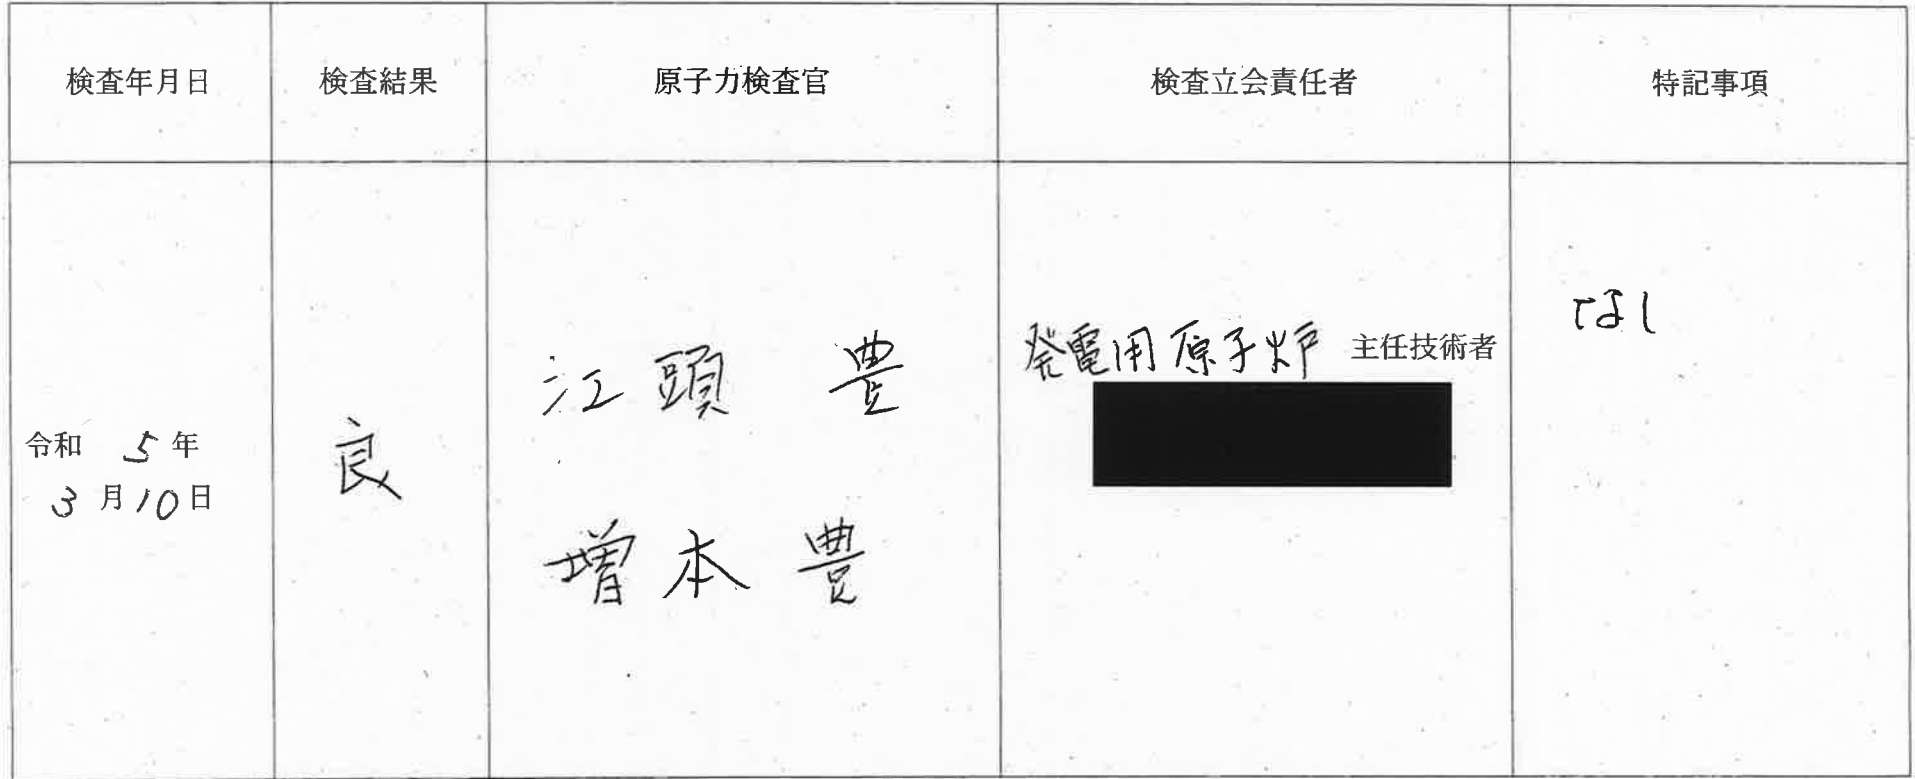 検査年月日
検査結果
原子力検査官
検査立会責任者
特記事項
令和 5年
3月10日
良
江頭 豊
増本 豊
発電用原子炉 主任技術者
なし